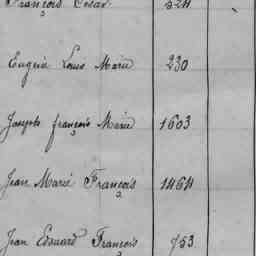 François César 324
Eugène Louis Marie 230
Joseph françois Marie 1603
Jean Marie François 1464
Jean Edouard François 753